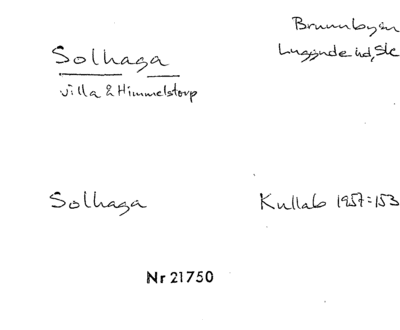 Solhaga
villa å Himmelstorp
Brunnbysn
Luggude hd, Sk
Solhaga
Kullab 1957:153
Nr 21750